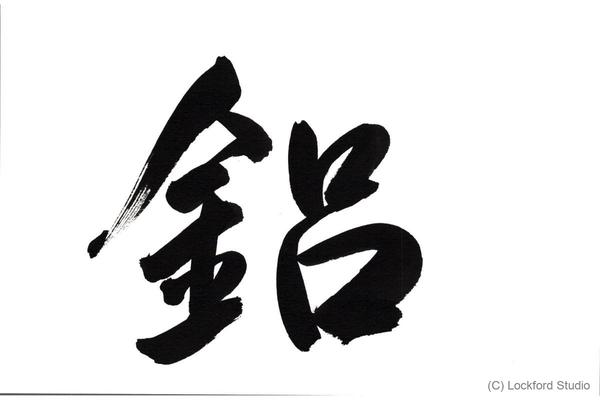 鋁
(C) Lockford Studio